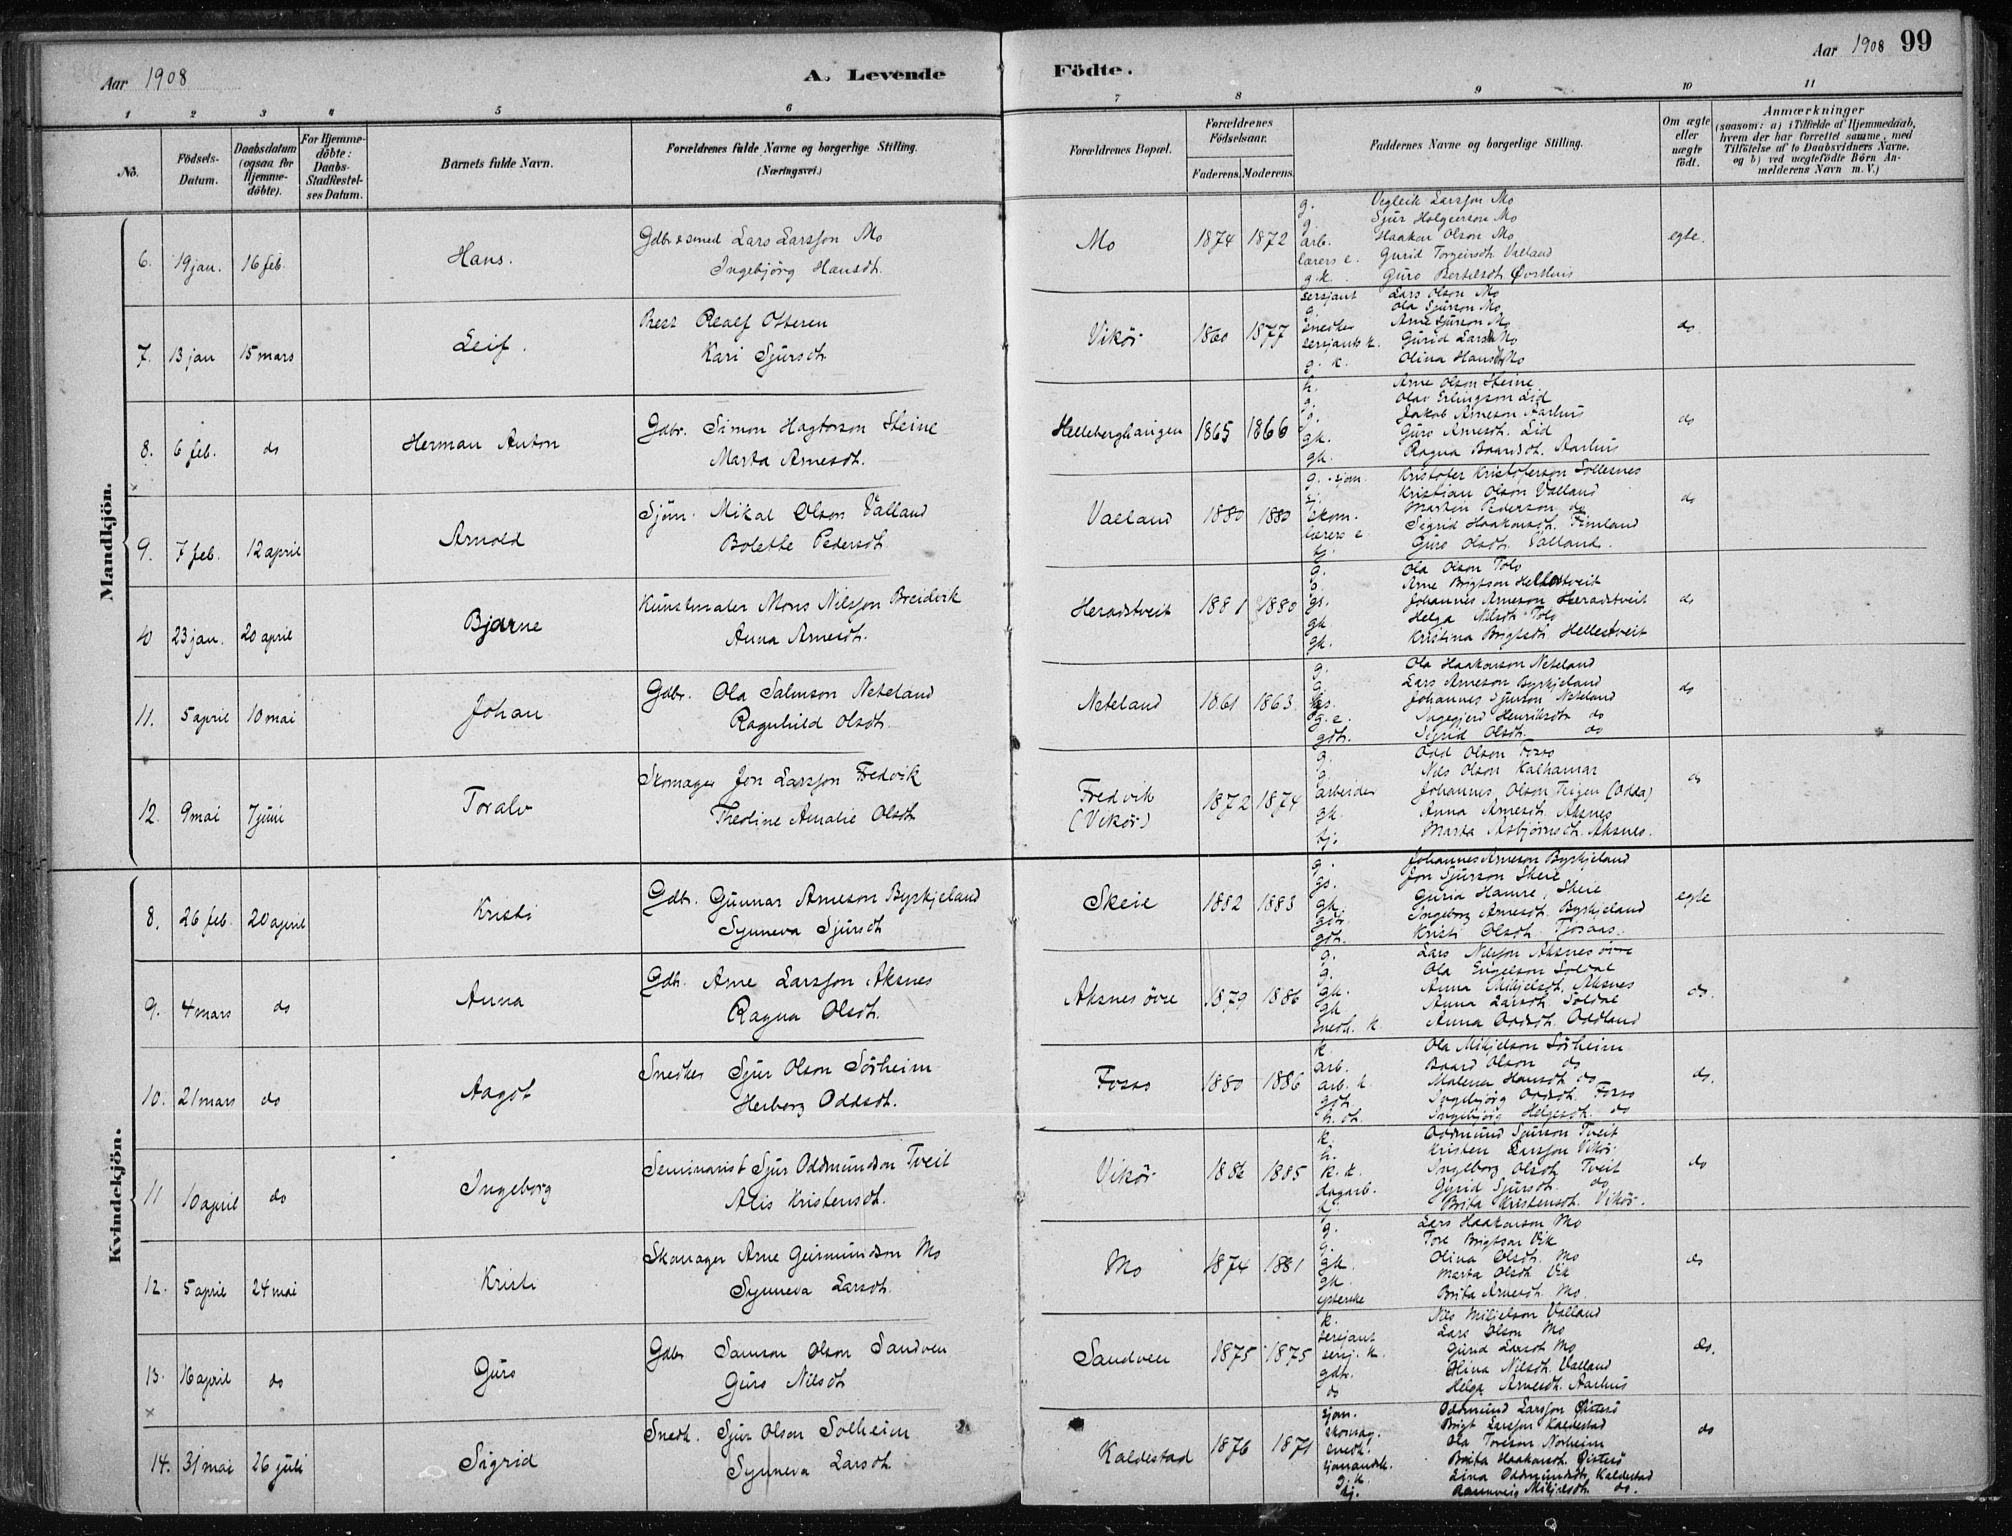 Aar 1908
A. Levende Födte.
Aar 1908 99
1 2 3 4 5 6 7 8 9 10 11
No.
Födsels-Datum.
Daabsdatum (ogsaa for Hjemme-döbte).
For Hjemme-döbte: Daabs-Stadfæstel-ses Datum.
Barnets fulde Navn.
Forældrenes fulde Navne og borgerlige Stilling.
(Næringsvei.)
Forældrenes Bopæl.
Forældrenes Födselsaar.
Faderens. Moderens.
Faddernes Navne og borgerlige Stilling.
Om ægte eller uægte födt.
Anmærkninger
(saasom: a) i Tilfælde af Hjemmedaab, hvem der har forrettet samme, med Tilföielse af to Daabsvidners Navne, og b) ved uægtefödte Börn Anmelderens Navn m. V.)
Mandkjön.
6. 19 jan. 16 feb. Hans. Gdbr & smed Lars Larsson Mo
Ingebjörg Hansdt.
Mo 1874 1872 egte.
g. Vegleik Larsson Mo
g. Sjur Holgerson Mo
arb. Haakon Olson Mo
lærers e. Gurid Torgeirsdt Valland
g. k. Guro Bertelsdt Øvsthus
7. 13 jan 15 mars Leif. Kari Sjursdt
Vikör 1860 1877 do
sersjant Lars Olson Mo
g. Ola Sjurson Mo
snedker Arne Sjurson Mo
sersjants k. Gurid Larsdt Mo
g. k. Olina Hansdt Mo
8. 6 feb. do Herman Anton Gdbr. Simon Hagtorson Steine
Marta Arnesdt.
Helleberghaugen 1865 1866 do
h. Arne Olson Steine
g. Olav Erlingson Lid
g. Jakob Arneson Aarhus
gk. Guro Arnesdt. Lid
gk. Ragna Baardsdt. Aarhus
9. 7 feb. 12 april Arnold Sjöm. Mikal Olson Valland
Bolette Pedersdt.
Valland 1880 1880 do
g. sjöm. Kristofer Kristoferson Sollesnes
Kristian Olson Valland
skom. Martin Pederson do
lærers e. Sigrid Haakonsdt.
tj. Guro Olsdt. Valland.
10 23 jan. 20 april Bjarne Kunstmaler Mons Nilsson Breidvik
Anna Arnesdt.
Heradstveit 1881 1880 do
g. Ola Olson Tolo
g. Arne Brigtson Hellestveit
gs. Johannes Arneson Heradstveit
gk. Helga Nilsdt Tolo
gk. Kristina Brigtsdt Hellestveit
11. 5 april 10 mai Johan Gdbr. Ola Salmson Neteland
Ragnhild Olsdt.
Neteland 1861 1863 do
g. Ola Haakonson Neteland
g. Lars Arneson Byrkjeland
gs. Johannes Sjurson Neteland
g. e. Ingegjerd Henriksdt do
gdt. Sigrid Olsdt. do
12. 9 mai 7 juni Toralv Skomager Jon Larsson Fredvik
Theoline Amalie Olsdt
Fredvik (Vikör) 1872 1874 do
g. Odd Olson Fosso
g. Nils Olson Kalhamar
arbeider Johannes Olson Teigen (Odda)
gk. Anna Arnesdt. Aksnes
tj. Marta Asbjörnsdt. Aksnes.
Kvindekjön.
8. 26 feb. 20 april Kristi Gdbr. Gunnar Arneson Byrkjeland
Synneva Sjursdt
Skeie 1882 1883 egte
g. Johannes Arneson Byrkjeland
gs. Jon Sjurson Skeie
gk. Gurid Hamre, Skeie
gdt. Ingeborg Arnesdt. Byrkjeland
gdt. Kristi Olsdt.
9. 4 mars do Anna Gdbr. Arne Larsson Aksnes
Ragna Olsdt.
Aksnes övre 1879 1886 do.
g. Lars Nilsson Aksnes övre
g. Ola Engelson Soldal
gk. Anna Mikjelsdt. Aksnes
gk Anna Larsdt. Soldal
snedk. k. Anna Oddsdt. Oddland
10. 21 mars do Aagot Snedker Sjur Olson Sörheim
Herborg Oddsdt.
Fosso 1880 1886 do.
k. Ola Mikjelson Sörheim
arb. Baard Olson do
arb. k. Malena Hansdt do
gdt. Ingebjörg Oddsdt. Fosso
h. dt. Ingebjörg Helgesdt. do
11 10 april do Ingeborg Seminarist Sjur Oddmundson Tveit
Alis Kristensdt.
Vikör 1882 1885 do
k. Oddmund Sjurson Tveit
h. Kristen Larsson Vikör
k. k. Ingeborg Olsdt Tveit
dagarb. Gyrid Sjursdt. do
Brita Kristensdt. Vikör.
12. 5 april 24 mai Kristi Skomager Arne Geirmundson Mo
Synneva Larsdt.
Mo 1874 1881 do
g. Lars Haakonson Mo
g. Tore Brigtson Vik
gk. Olina Olsdt. Mo
gk. Marta Olsdt. Vik
ysterske Brita Arnesdt. Mo.
13. 16 april do Guro Gdbr Samson Olson Sandven
Guro Nilsdt
Sandven 1875 1875 do.
k. Nils Mikjelson Valland
sersjant Lars Olson Mo
sersj. k. Gurid Larsdt Mo
gdt. Elina Nilsdt. Valland
do Helga Arnesdt. Aarhus
14. 31 mai 26 juli Sigrid Snedk. Sjur Olson Solheim
Synneva Larsdt.
Kaldestad 1876 1871 do
sjöm. Oddmund Larsson
skomag. Brigt Larsson Kaldestad
snedk. Ola Toreson Norheim
sjömandsk. Brita Haakonsdt.
g. k. Lina Oddmundsdt. Kaldestad
tj. Rannveig Mikjelsdt. do.